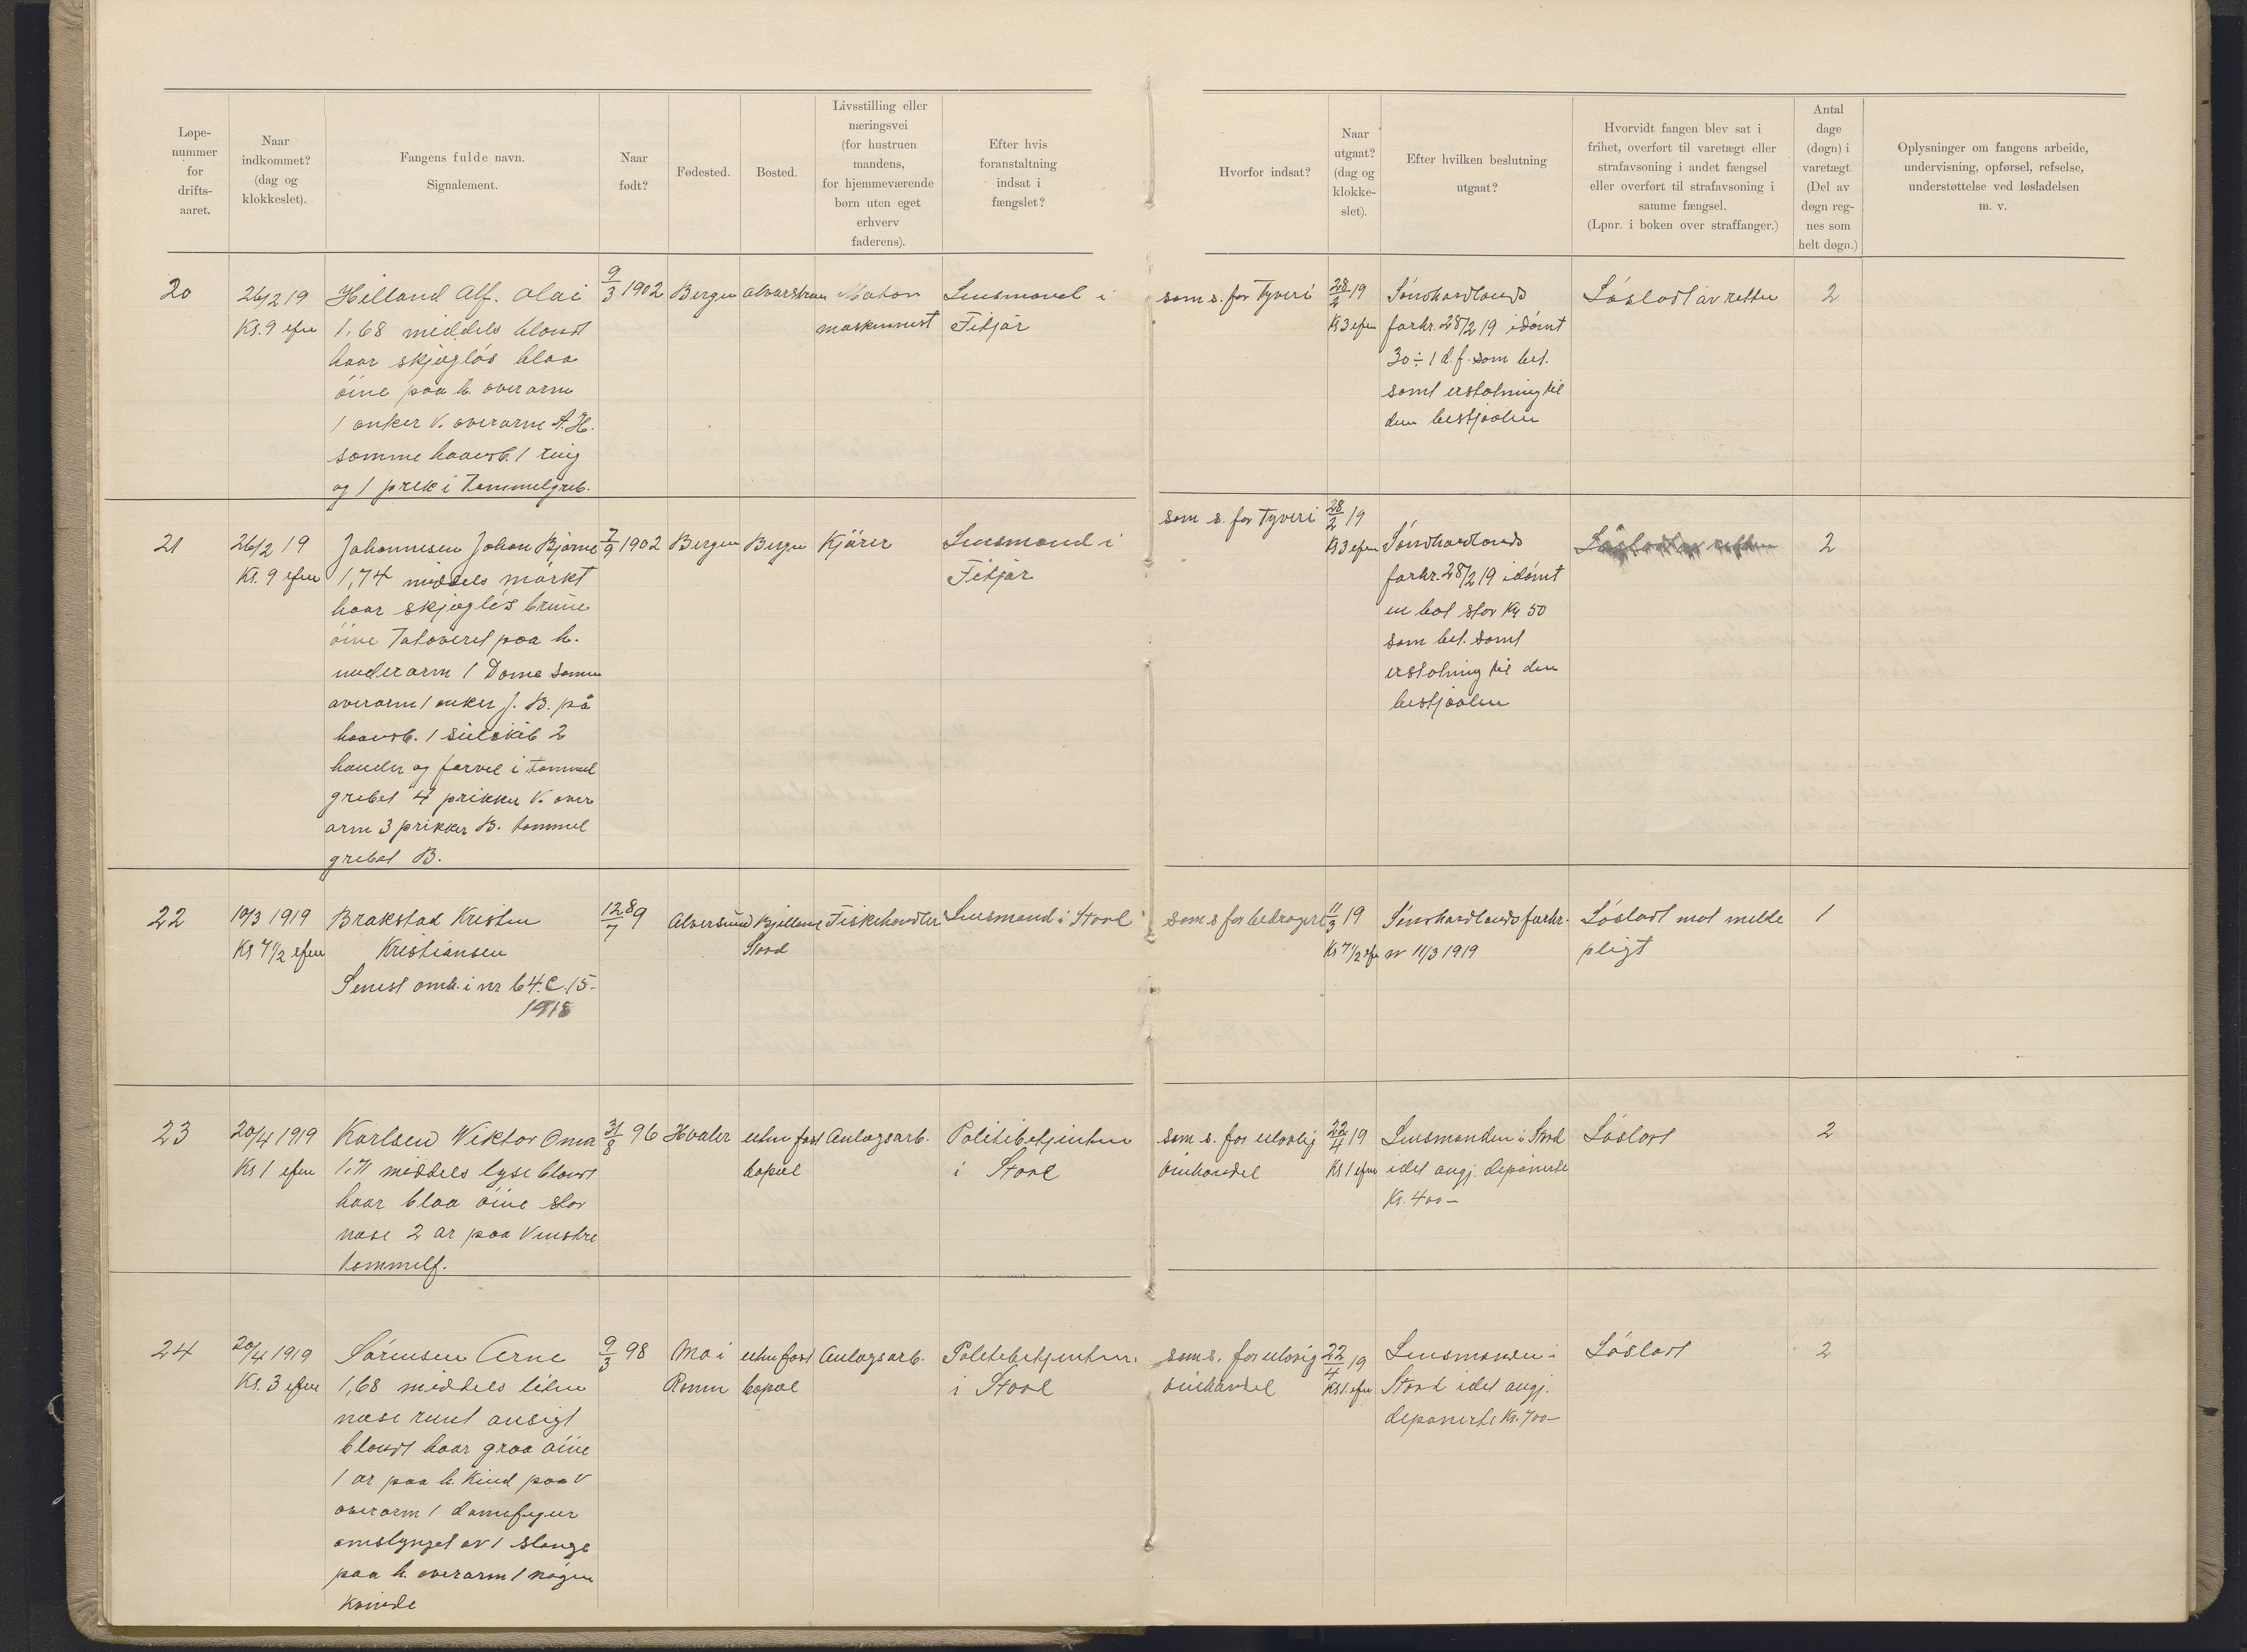 Løpe-
nummer
for
drifts-
aaret.
Naar
indkommet?
(dag og
klokkeslet).
Fangens fulde navn.
Signalement.
Naar
født?
Fødested.
Bosted.
Livsstilling eller
næringsvei
(for hustruen
mandens,
for hjemmeværende
børn uten eget
erhverv
faderens).
Efter hvis
foranstaltning
indsat i
fængslet?
Hvorfor indsat?
Naar
utgaat?
(dag og
klokke-
slet).
Efter hvilken beslutning
utgaat?
Hvorvidt fangen blev sat i
frihet, overført til varetægt eller
strafavsoning i andet fængsel
eller overført til strafavsoning i
samme fængsel.
(Lpnr. i boken over straffanger.)
Antal
dage
(døgn) i
varetægt
(Del av
døgn reg-
nes som
helt døgn.)
Oplysninger om fangens arbeide,
undervisning, opførsel, refselse,
understøttelse ved løsladelsen
m. v.
20
26/2 19
Kl. 9 efm
Helland Alf. Olai
1.68 middels blondt
haar skjægløs blaa
øine paa h. overarm
1 anker V. overarm A.H.
samme haandb. 1 ring
og 1 prik i tommelgreb.
9/3 1902
Bergen
Alvarstrau
Motor
maskinnist
Lensmand i
Fitjar
som s. for Tyveri
28/2 19
Kl 3 efm
Søndhordlands
forhr. 28/2 19 idømt
30 ÷ 1 d. f. som bet.
samt erstatning til
den bestjaalne
Løsladt av retten
2
21
26/2 19
Kl. 9 efm
Johannesen Johan Bjarne
1,74 middels mørkt
haar skjægløs brune
øine Tatoveret paa h.
underarm 1 Dame samme
overarm 1 anker J. B. på
haandb. 1 seilskib 2
hænder og farvel i tommel
grebet 4 prikker V. over
arm 3 prikker B. tommel
grebet B.
7/9 1902
Bergen
Bergen
Kjører
Lensmand i
Fitjar
som s. for Tyveri
28/2 19
Kl 3 efm
Søndhordlands
forhr. 28/2 19 idømt
en bot stor Kr 50
som bet. samt
erstatning til den
bestjaalne
Løsladt av retten
2
22
10/3 1919
Kl 7 1/2 efm
Brakstad Kristen
Kristiansen
Senest omh. i nr 64. C. 15-
1918
12/7 89
Alversund
Kjilland
Stord
Fiskehandler
Lensmand i Stord
som s for bedrageri
11/3 19
Kl 7 1/2 efm
Søndhordlands forhr.
av 11/3 1919
Løsladt mot melde
pligt
1
23
20/4 1919
Kl 1 efm
Karlsen Wiktor Omar
1.71 middels lyse blondt
haar blaa øine stor
næse 2 ar paa Venstre
tommelf.
31/8 96
Hvaler
uten fast
bopæl
Anlægsarb.
Politibetjenten
i Stord
som s. for ulovlig
vinhandel
22/4 19
Kl 1 efm
Lensmanden i Stord
idet angj. deponerte
Kr. 400-
Løsladt
2
24
20/4 1919
Kl. 3 efm
Sørensen Arne
1,68 middels liten
næse rund ansigt
blondt haar graa øine
1 ar paa h. kind paa V
overarm 1 damefigur
omslynget av 1 slange
paa h. overarm 1 nøgen
kvinde
9/3 98
Mo i
Ranen
uten fast
bopæl
Anlægsarb.
Politibetjenten
i Stord
som s. for ulovlig
vinhandel
22/4 19
Kl 1. efm
Lensmanden i
Stord idet angj.
deponerte Kr. 700-
Løsladt
2